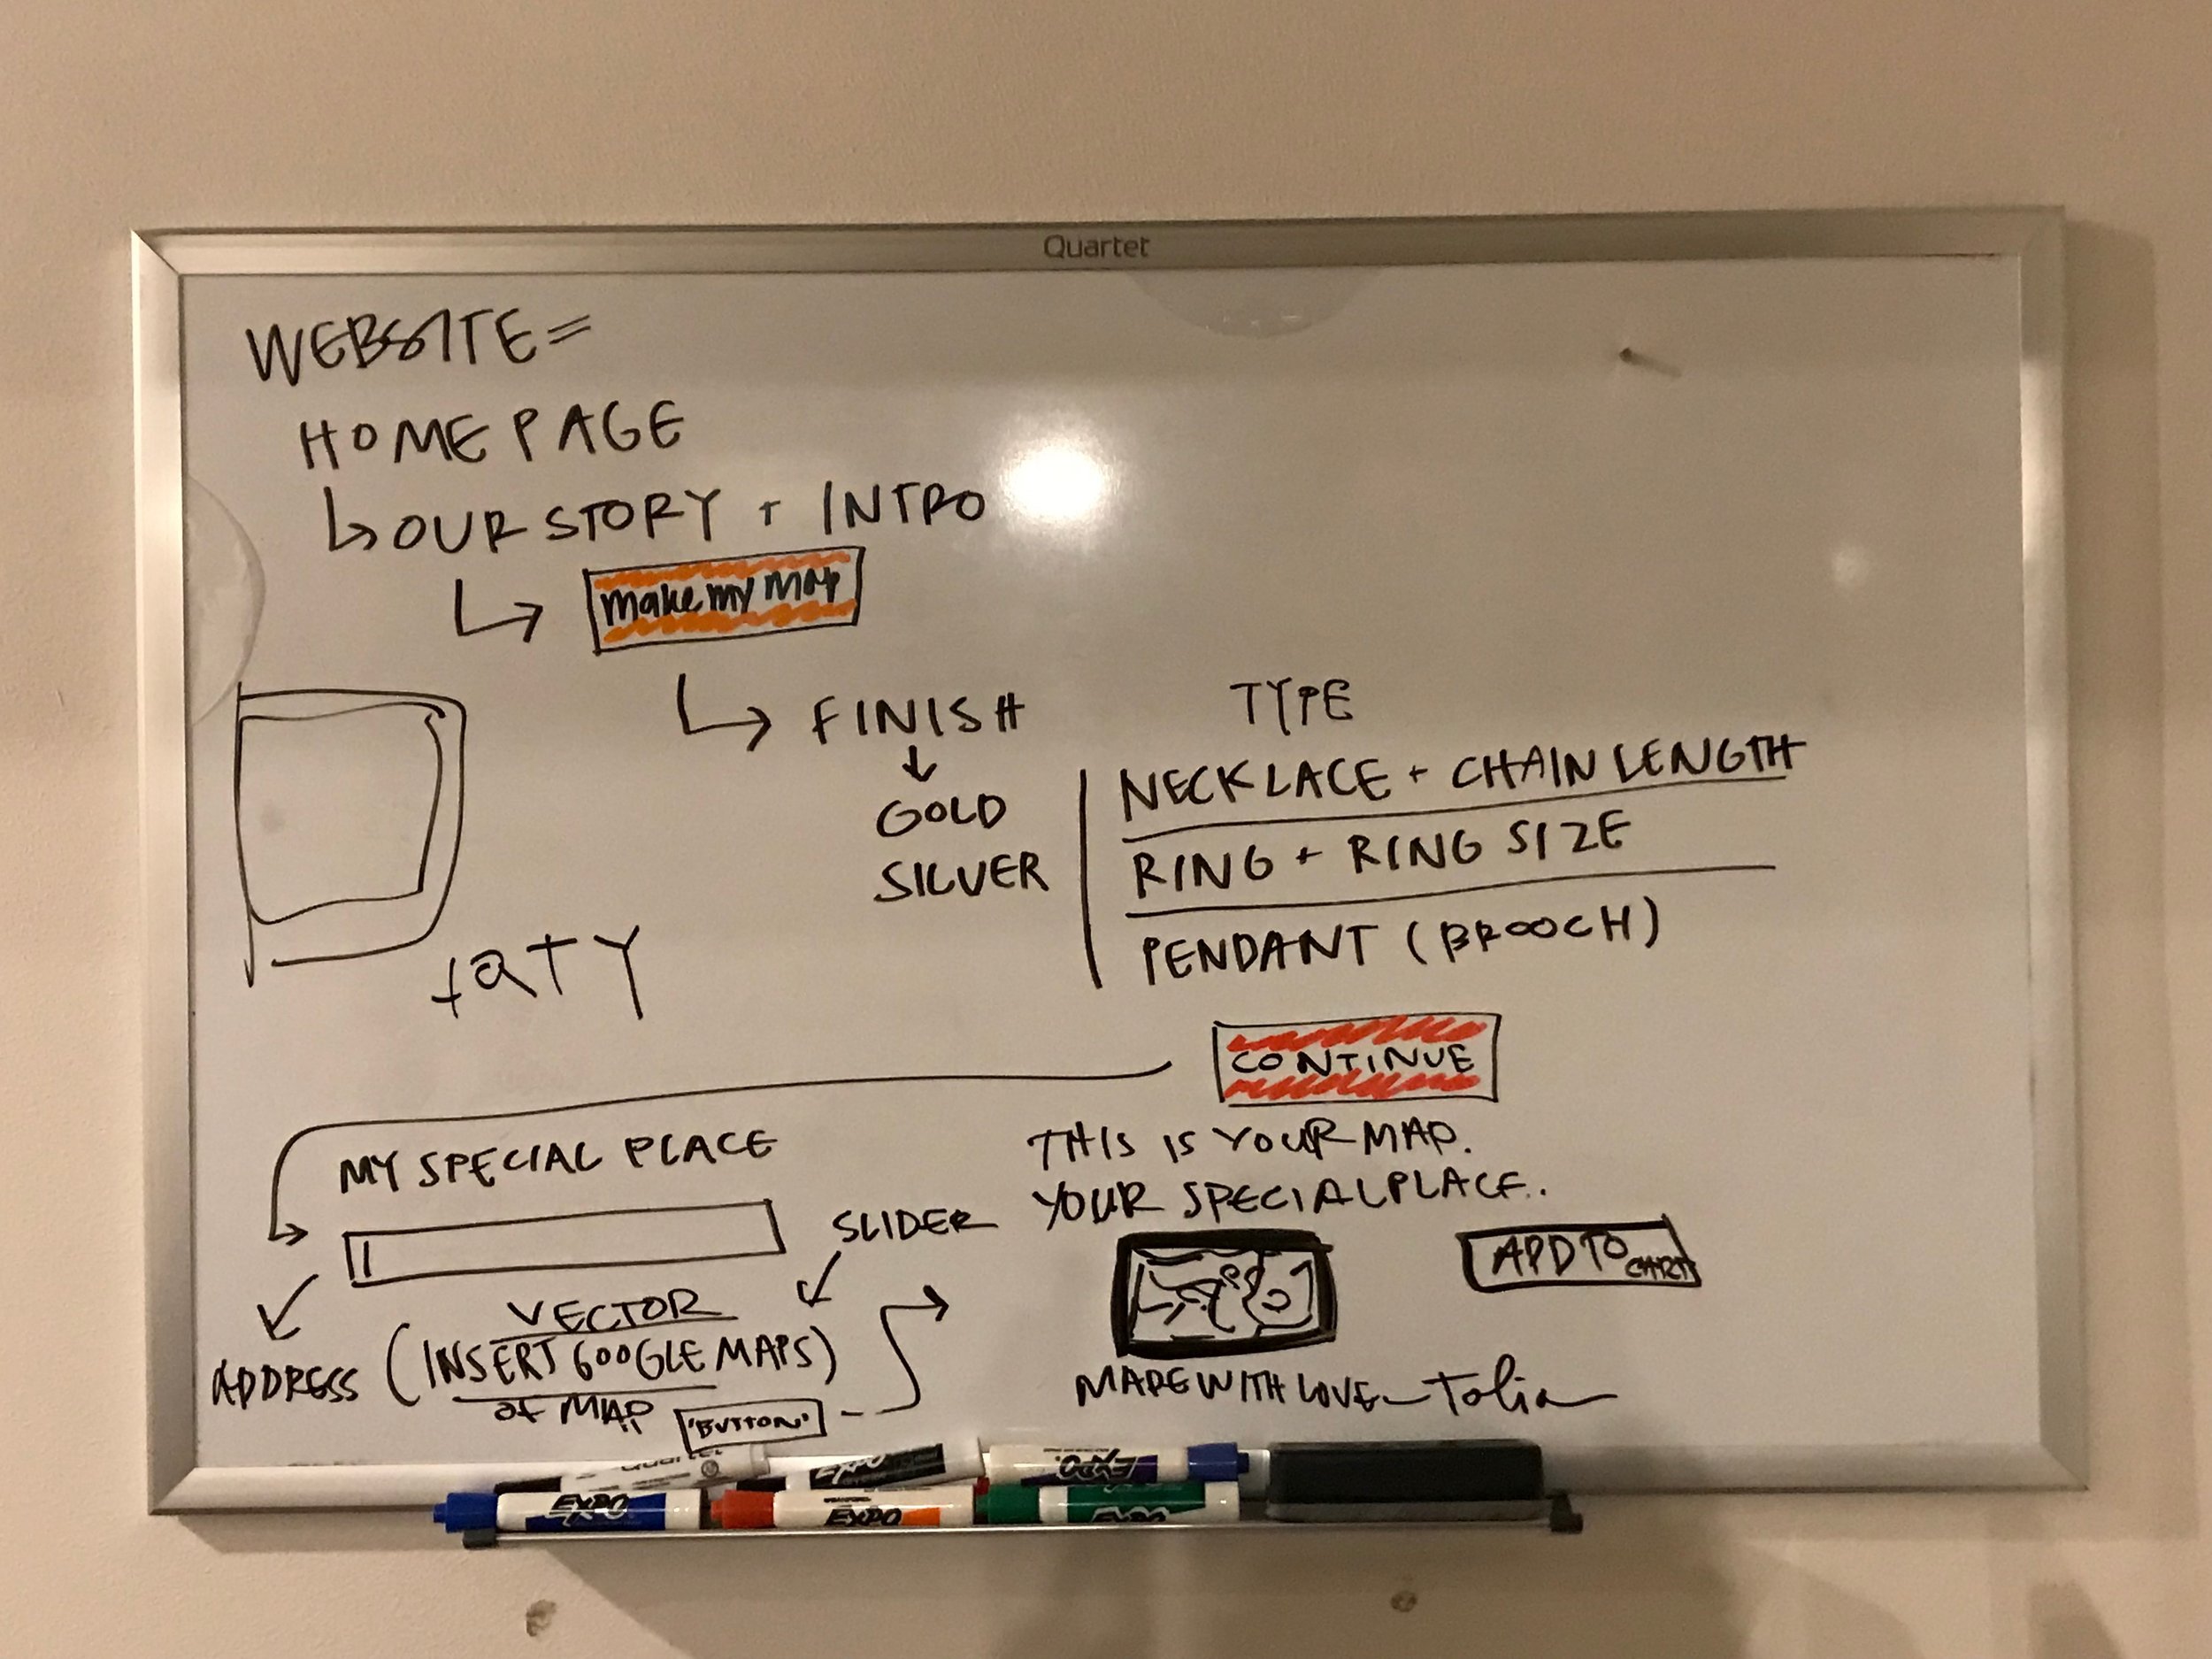 Quartet
WEBSITE =
HOME PAGE
OUR STORY + INTRO
make my map
FINISH
GOLD
SILVER
TYPE
NECKLACE + CHAIN LENGTH
RING + RING SIZE
PENDANT (BROOCH)
+QTY
CONTINUE
MY SPECIAL PLACE
SLIDER
ADDRESS
VECTOR
(INSERT GOOGLE MAPS)
of MAP
'BUTTON'
THIS IS YOUR MAP.
YOUR SPECIAL PLACE..
ADD TO CART
MADE WITH LOVE - Talia
Quartet
EXPO
EXPO
EXPO
EXPO
EXPO